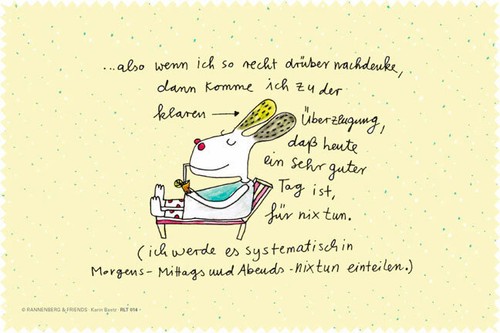 ...also wenn ich so recht drüber nachdenke,
dann komme ich zu der
klaren → Überzeugung,
daß heute
ein sehr guter
Tag ist,
für nix tun.
(ich werde es systematisch in
Morgens- Mittags und Abends -nixtun einteilen.)
© RANNENBERG & FRIENDS · Karin Bentz · RLT 014 ·